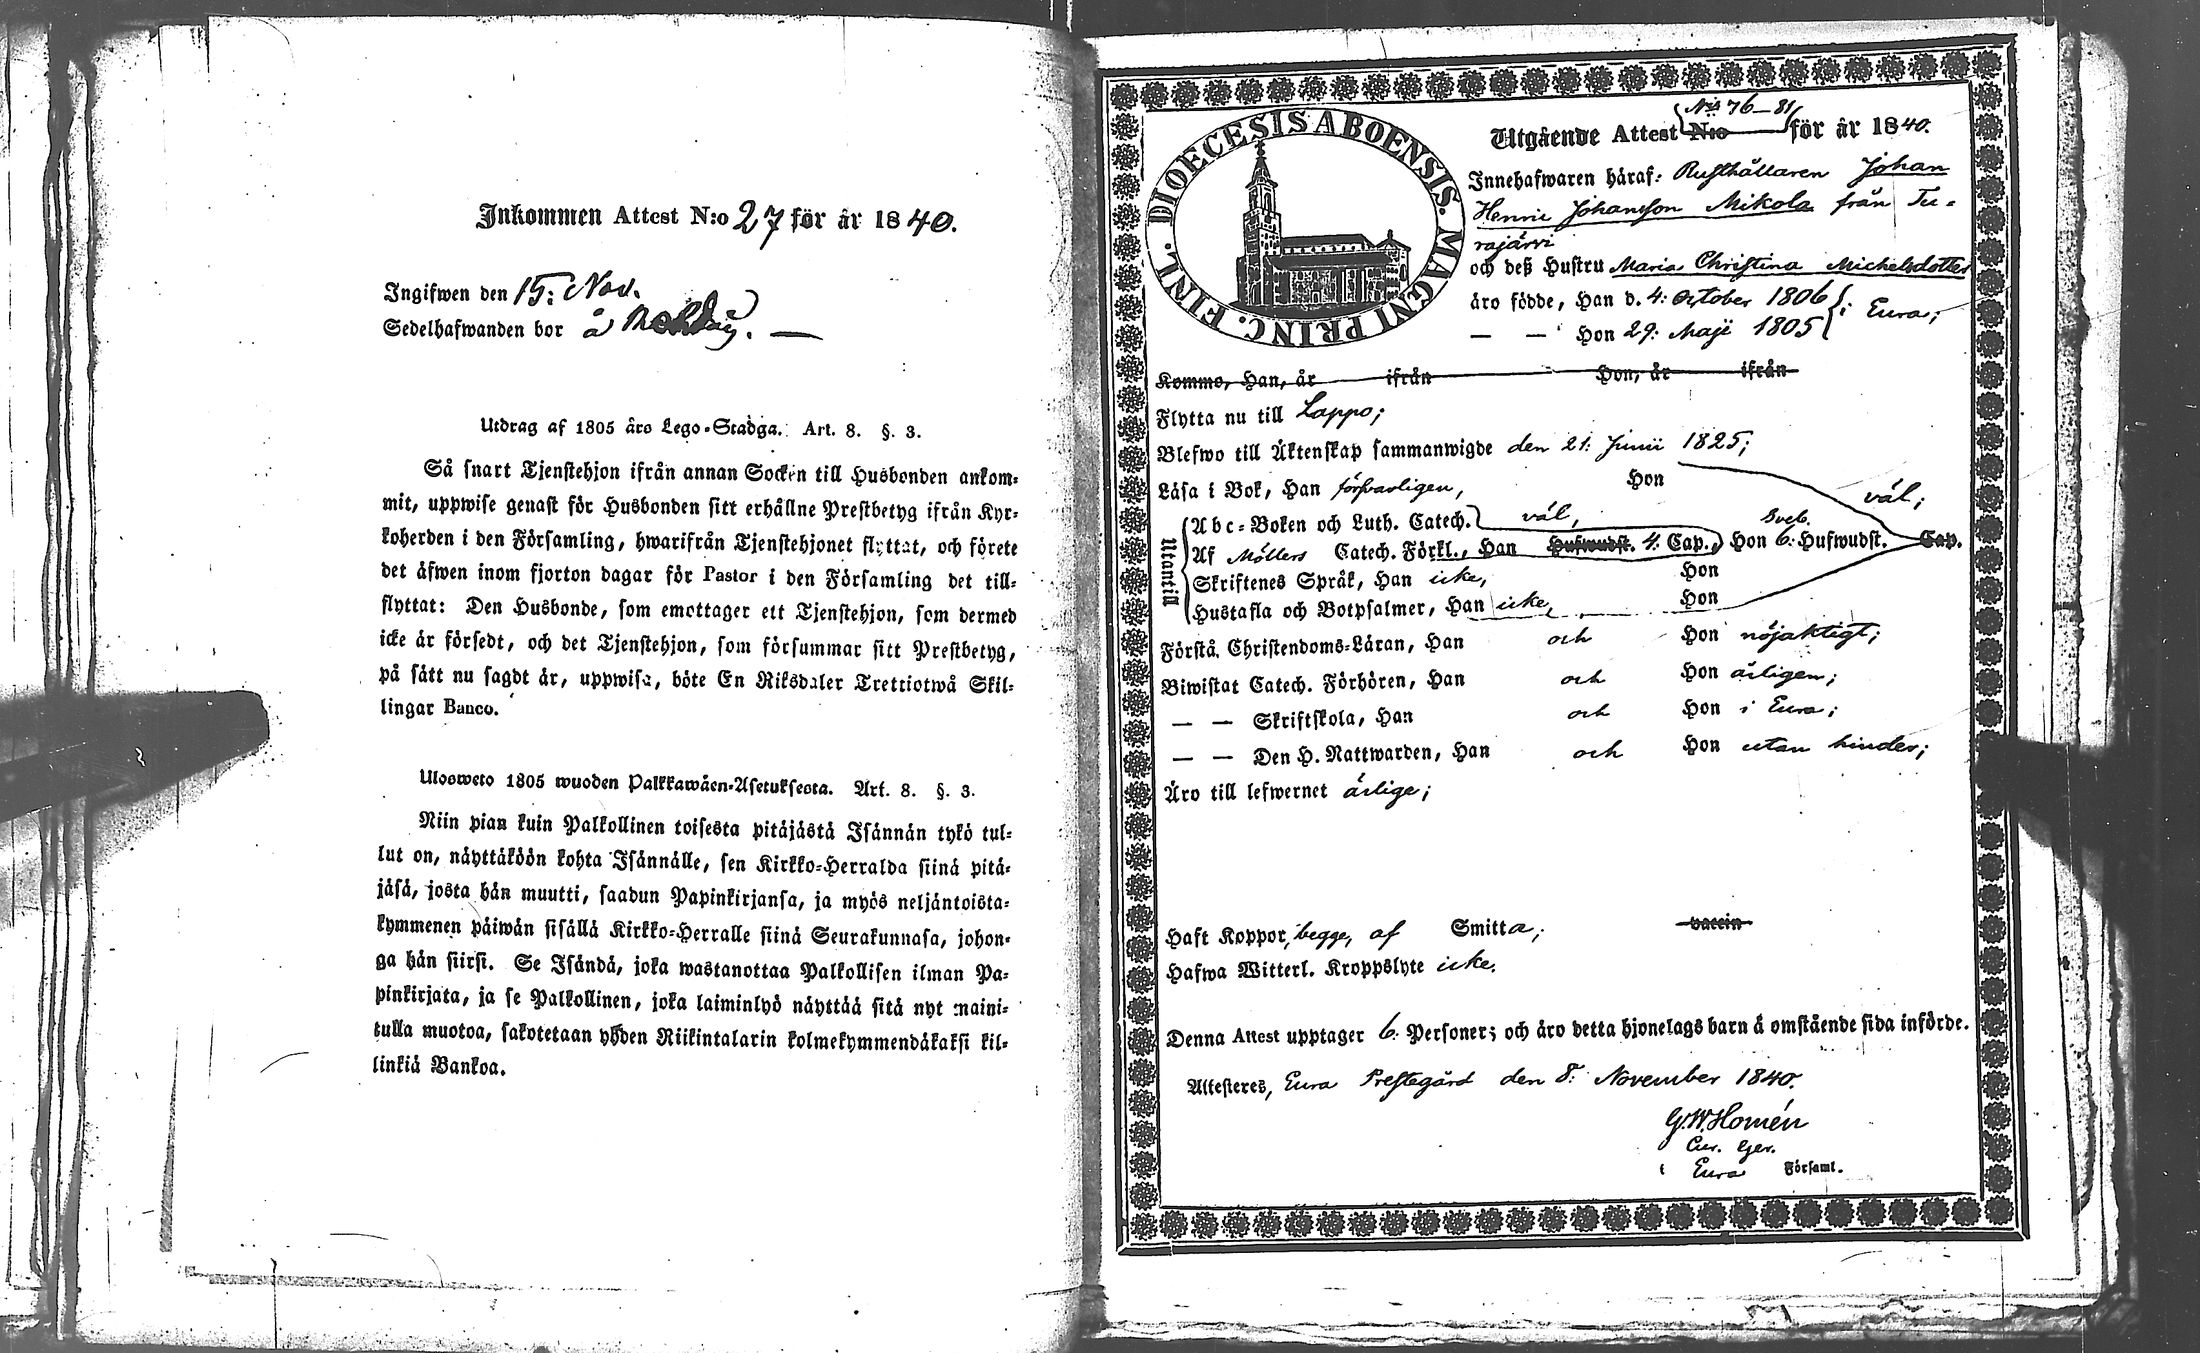 Inkommen Attest N:o 27 för år 1840.
Ingifwen den 15: Nov.
Sedelhafwanden bor å
Utdrag af 1805 års Lego-Stadga. Art. 8. §. 3.
Så snart Tjenstehjon ifrån annan Socken till Husbonden ankom-
mit, uppwise genast för Husbonden sitt erhållne Prestbetyg ifrån Kyr-
koherden i den Församling, hwarifrån Tjenstehjonet flyttat, och förete
det äfwen inom fjorton dagar för Pastor i den Församling det till-
flyttat: Den Husbonde, som emottager ett Tjenstehjon, som dermed
icke är försedt, och det Tjenstehjon, som försummar sitt Prestbetyg,
på sätt nu sagdt är, uppwisa, böte En Riksdaler Trettiotwå Skil-
lingar Banco.
Ulosweto 1805 wuoden Palkkawäen-Asetuksesta. Art. 8. §. 3.
Niin pian kuin Palkollinen toisesta pitäjästä Isännän tykö tul-
lut on, näyttäköön kohta Isännälle, sen Kirkko-Herralda siinä pitä-
jäsä, josta hän muutti, saadun Papinkirjansa, ja myös neljäntoista-
kymmenen päiwän sisällä Kirkko-Herralle siinä Seurakunnasa, johon-
ga hän siirsi. Se Isändä, joka wastanottaa Palkollisen ilman Pa-
pinkirjata, ja se Palkollinen, joka laiminlyö näyttää sitä nyt maini-
tulla muotoa, sakotetaan yhden Riikintalarin kolmekymmendäkaksi kil-
linkiä Bankoa.
DIOECESIS ABOENSIS. MAGNI PRINC. FINL.
N:is 76-81
Utgående Attest N:o för år 1840.
Innehafwaren häraf: Rusthållaren Johan
Henric Johansson Mikola från Tu-
rajärvi
och deß Hustru Maria Christina Michelsdotter
äro födde, Han d. 4: October 1806 i Eura;
— — Hon 29: Maji 1805
Kommo, Han, år ifrån Hon, år ifrån
Flytta nu till Lappo;
Blefwo till Äktenskap sammanwigde den 21: Junii 1825;
Läsa i Bok, Han försvarligen, Hon väl;
Utantill
Abc-Boken och Luth. Catech. väl,
Af Möllers Catech. Förkl., Han Hufwudst. 4. Cap., Hon Sveb. 6: Hufwudst. Cap.
Skriftenes Språk, Han icke, Hon
Hustafla och Botpsalmer, Han icke, Hon
Förstå Christendoms-Läran, Han och Hon nöjaktigt;
Biwistat Catech. Förhören, Han och Hon årligen;
— — Skriftskola, Han och Hon i Eura;
— — Den H. Nattwarden, Han och Hon utan hinder;
Äro till lefwernet ärlige;
Haft Koppor, begge, af Smitta; vaccin
Hafwa Witterl. Kroppslyte icke.
Denna Attest upptager 6. Personer; och äro detta hjonelags barn å omstående sida införde.
Attesteres, Eura Prestegård den 8: November 1840.
G.W. Homén
Cur. Ger.
i Eura Församl.